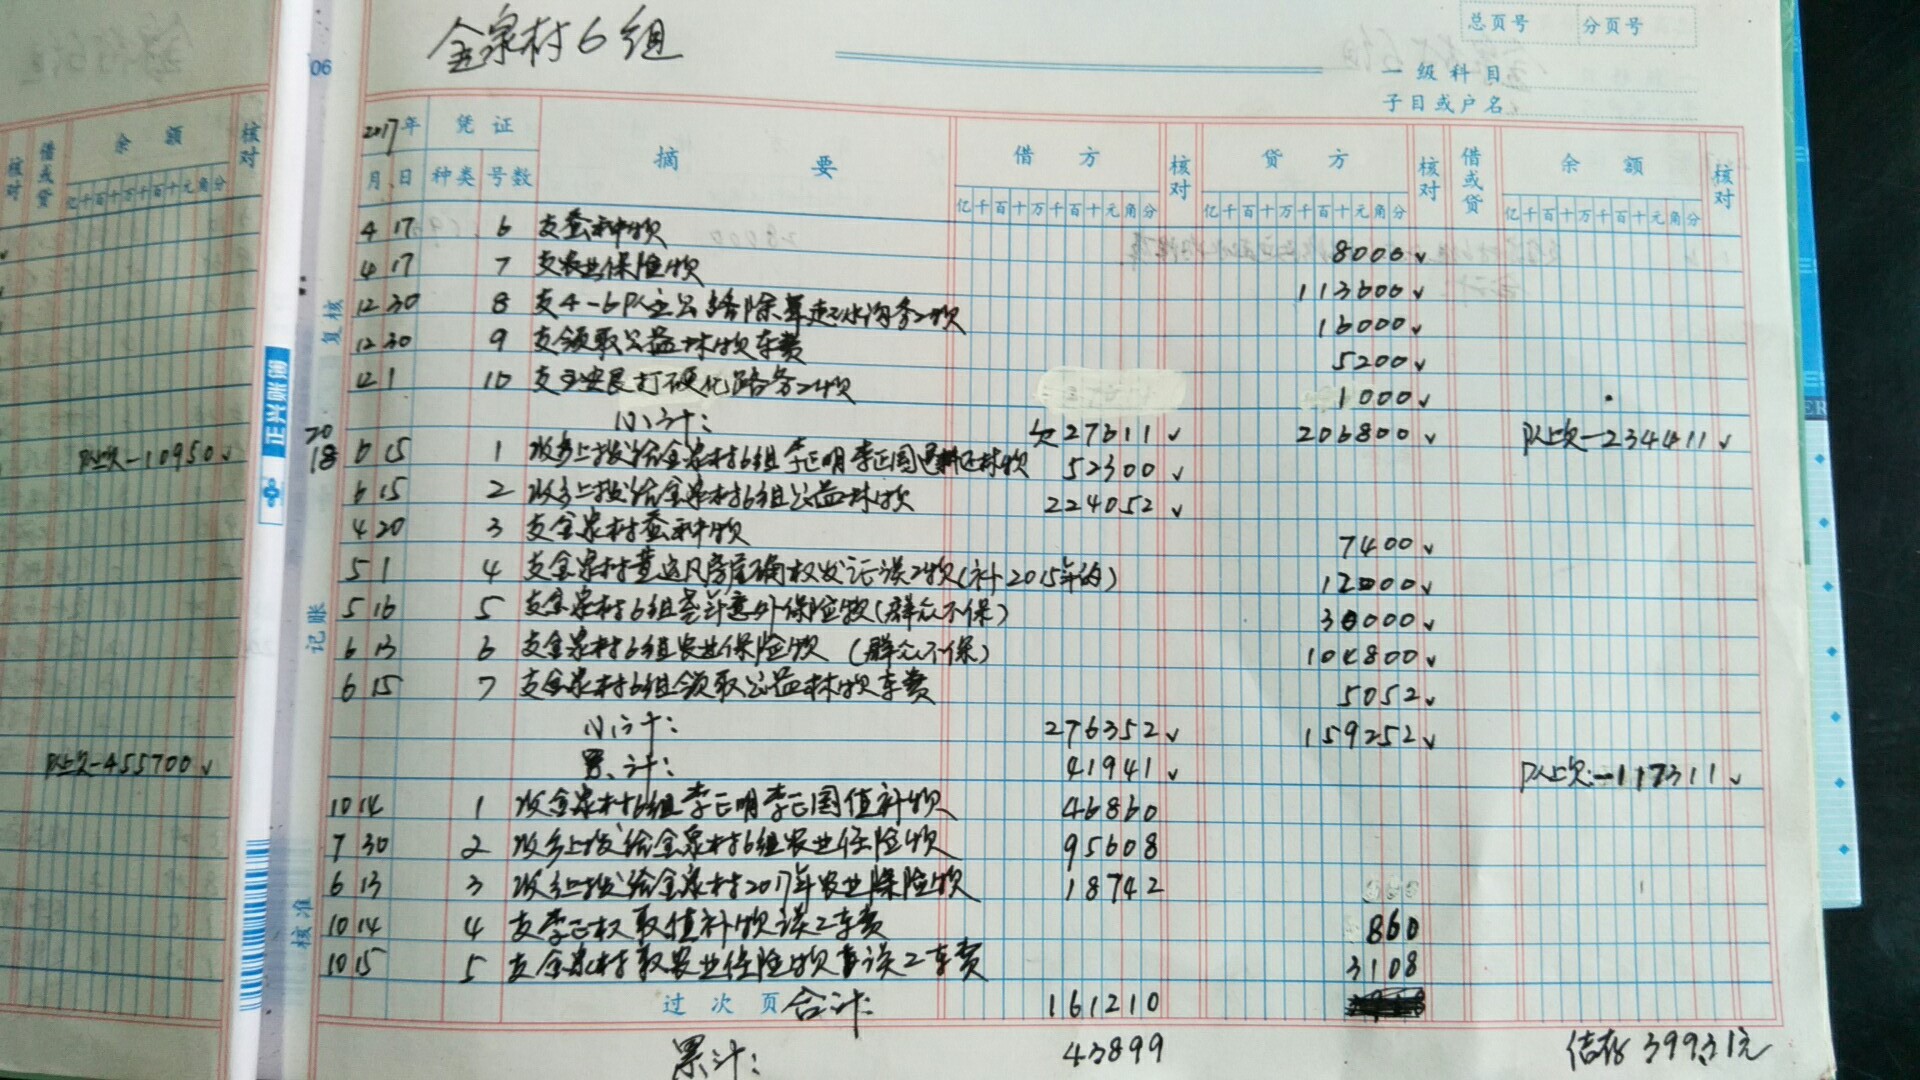 金泉村6组
总页号 分页号
一级科目
子目或户名
06
2017年 凭证 摘要 借方 核对 贷方 核对 借或贷 余额 核对
月 日 种类 号数 亿千百十万千百十元角分 亿千百十万千百十元角分 亿千百十万千百十元角分
4 17 6 支蚕种款 8000
4 17 7 支农业保险款 113600
12 30 8 支4-6队主公路除草赶水沟务工款 16000
12 30 9 支领取公益林款车费 5200
12 1 10 打硬化路务工款 1000
小计: 欠27611 206800 以上欠-234411
2018 6 15 1 收乡上拨给金泉村6组李正明李正国退耕还林款 52300
6 15 2 收乡上拨给金泉村6组公益林款 224052
4 20 3 支金泉村蚕种款 7400
5 1 4 支金泉村 房屋确权发证误工款(补2015年的) 12000
5 16 5 支金泉村6组 意外保险款(群众不保) 30000
6 13 6 支金泉村6组农业保险款 (群众不保) 104800
6 15 7 支金泉村6组领取公益林款车费 5052
小计: 276352 159252
累计: 41941 以上欠:-117311
10 14 1 收金泉村6组李正明李正国值补款 46860
7 30 2 收乡上拨给金泉村6组农业保险款 95608
6 13 3 收乡上拨给金泉村2017年农业保险款 18742
10 14 4 支李正权取植补款误工车费 860
10 15 5 支金泉村取农业保险款 误工车费 3108
过次页 合计: 161210
累计: 43899 结存 399.31元
核对 借或贷 余额 核对
亿千百十万千百十元角分
以上欠-10950
以上欠-455700
复核
记账
核准
正兴账簿